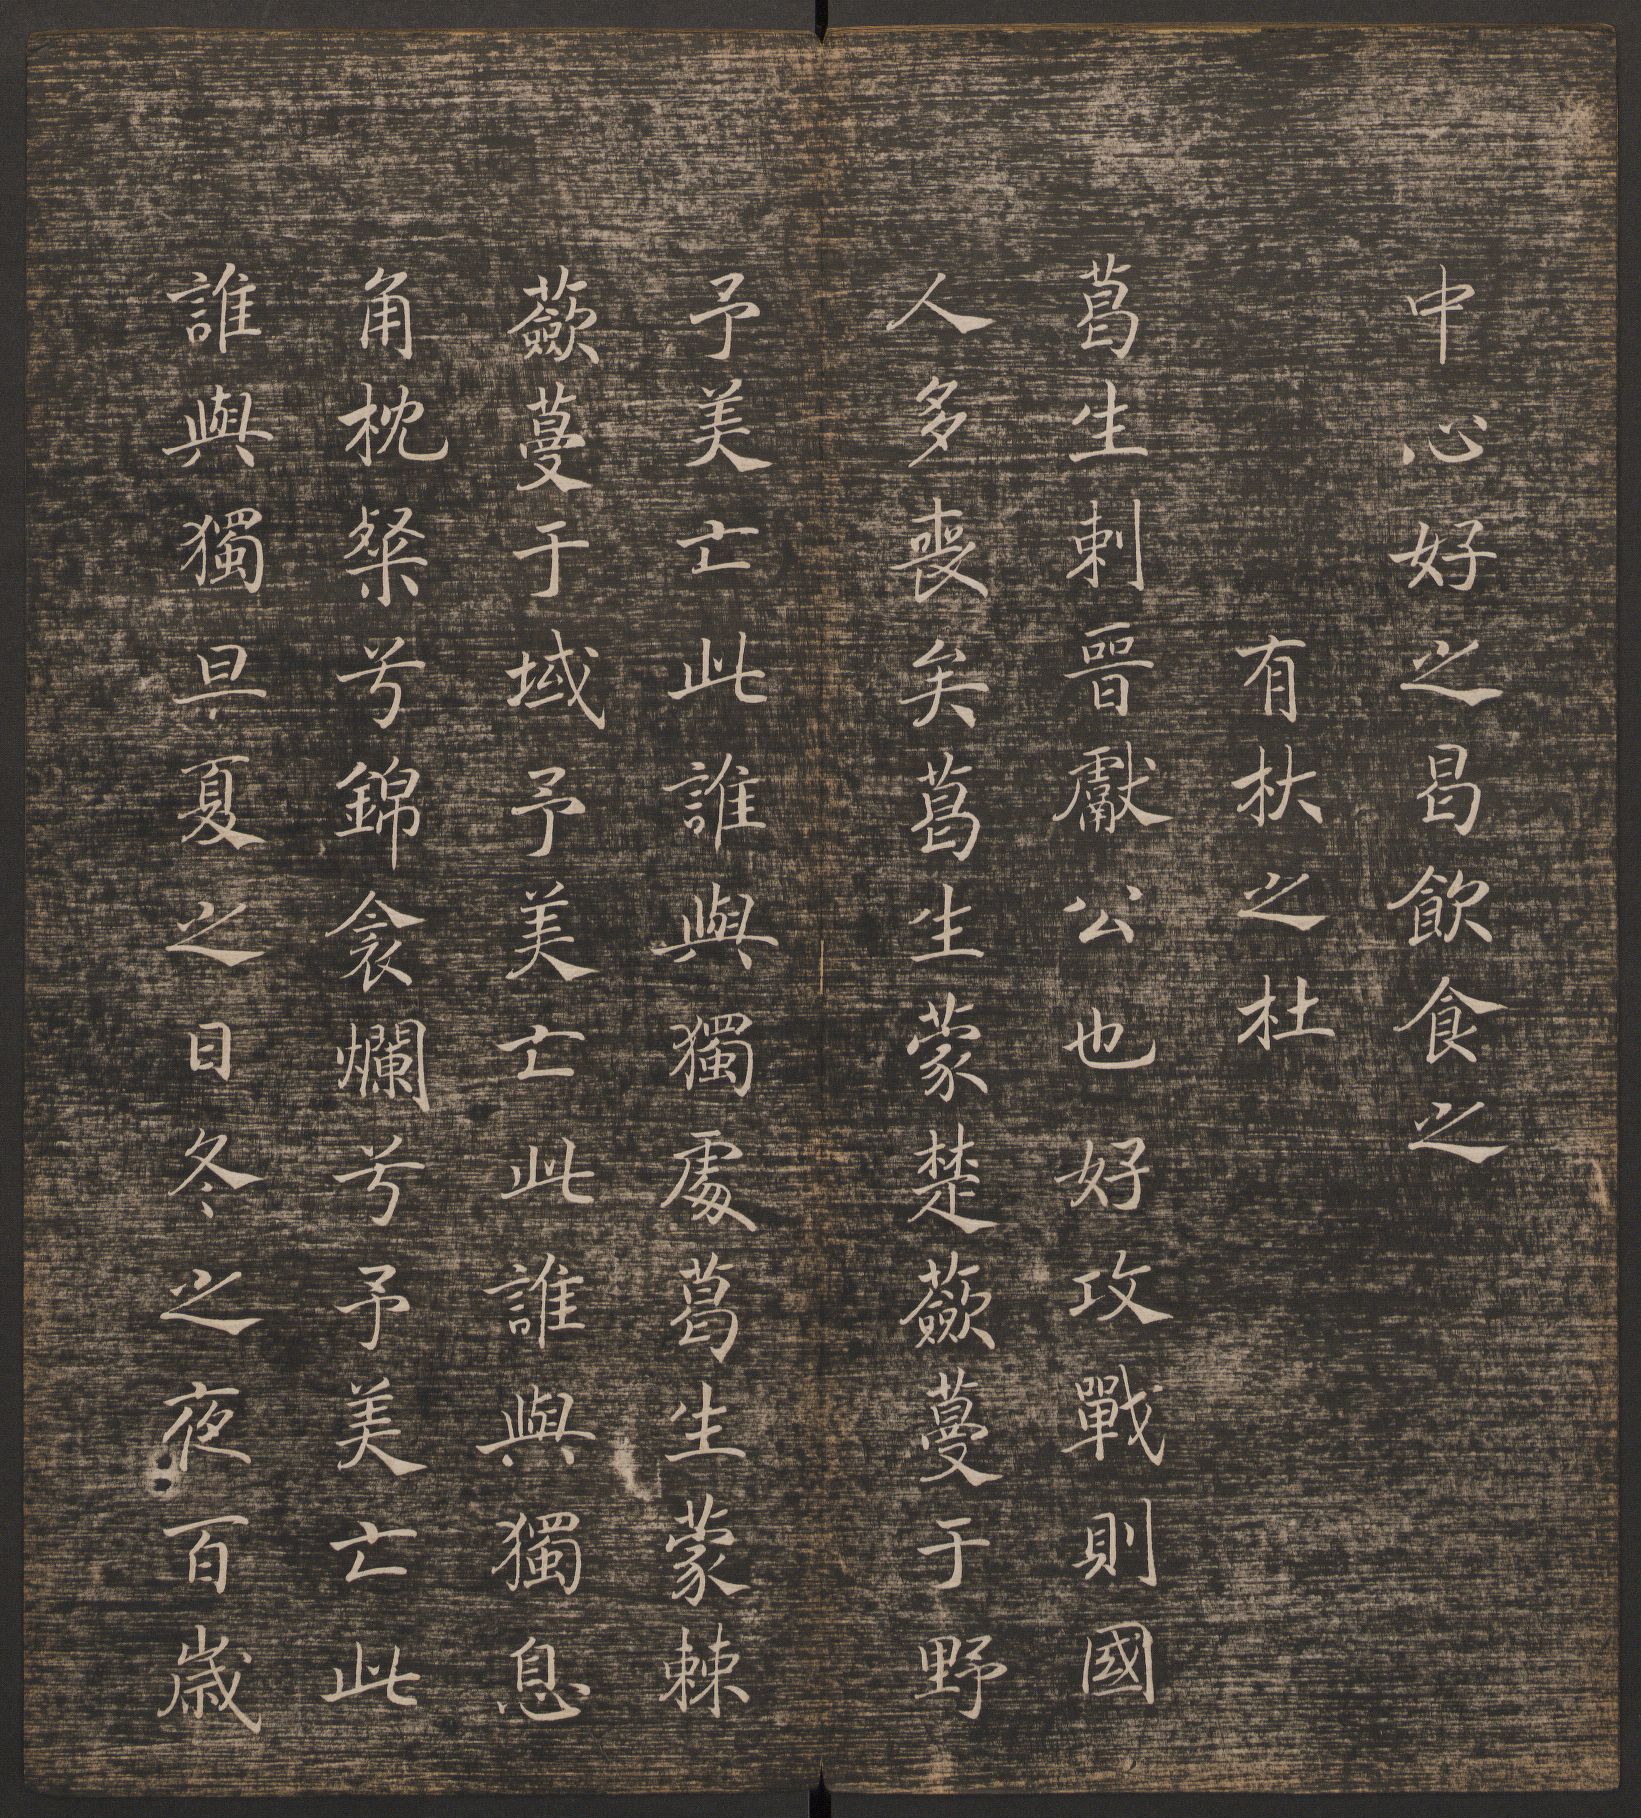 中心好之曷飲食之
有杕之杜
葛生刺晉獻公也好攻戰則國
人多喪矣葛生蒙楚蘞蔓于野
予美亡此誰與獨處葛生蒙棘
蘞蔓于域予美亡此誰與獨息
角枕粲兮錦衾爛兮予美亡此
誰與獨旦夏之日冬之夜百歲